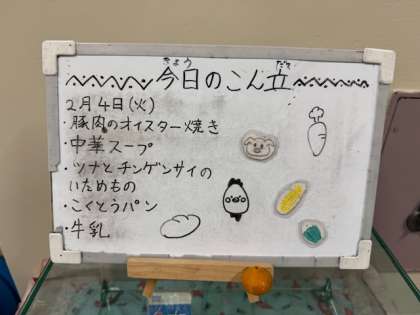 今日のこん立
2月4日(火)
・豚肉のオイスター焼き
・中華スープ
・ツナとチンゲンサイの
いためもの
・こくとうパン
・牛乳